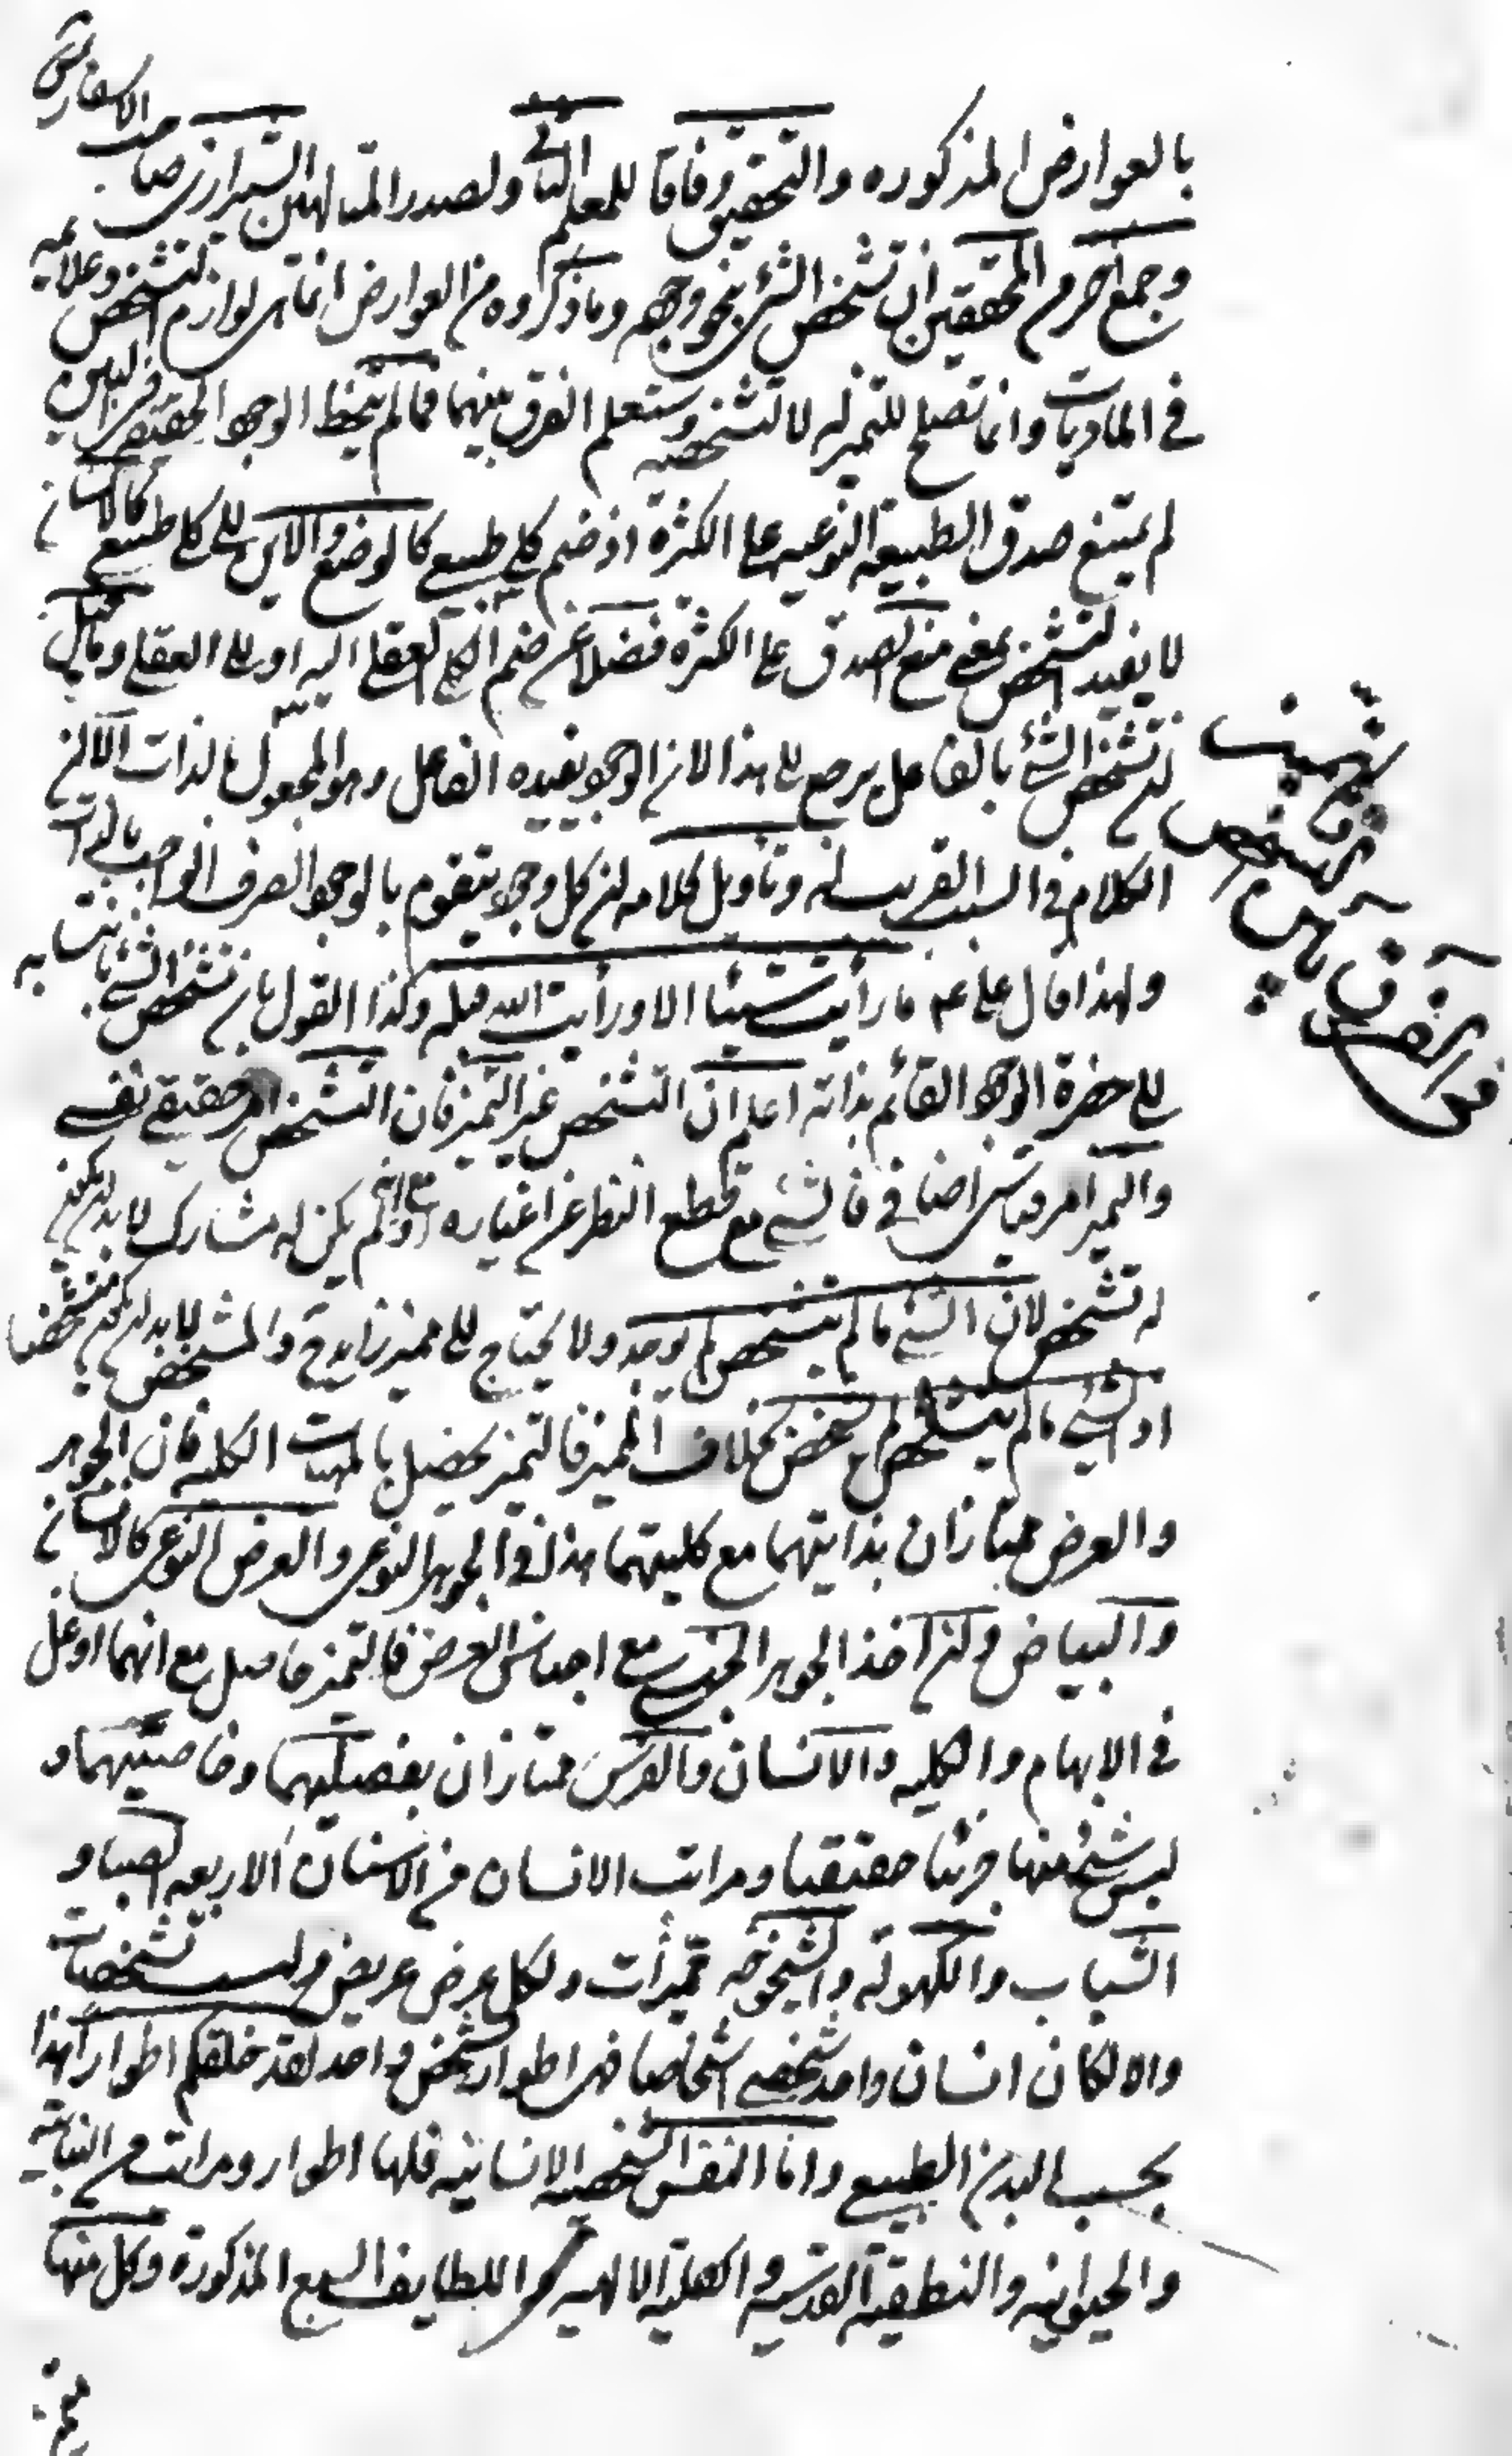 بالعوارض المذكوره والتحقيق وفاقا للمعلم الثانى ولصدر المتالهين الشيرازى صاحب الاسفار
وجمع اخر من المحققين ان تشخص الشئ بنحو وجوده وما ذكروه من العوارض انما هى لوازم التشخص وعلايمه
فى الماديات وانما تصلح للتميز لا للتشخص وستعلم الفرق بينهما فما لم ينحط الوجود الحقيقى فى البين
لم يمتنع صدق الطبيعة النوعيه على الكثرة اذ ضم كلى طبيعى كالوضع والاين الى كلى طبيعى كالانسان
لا يفيد التشخص بمعنى منع الصدق على الكثرة فضلا عن ضم الكلى العقلى اليه او الى العقلى وما قيل
ان تشخص الشئ بالفاعل يرجع الى هذا لان الوجود يفيده الفاعل وهو المجعول بالذات الا ان
الكلام فى السبب القريب له وتاويل كلامه ان كل وجود يتقوم بالوجود الصرف الواجب بالذات
ولهذا قال على عم ما رأيت شيئا الا ورأيت الله قبله وكذا القول بان تشخص الشئ بانتسابه
الى حضرة الوجود القائم بذاته اعلم ان التشخص غير التميز فان التشخص امر حقيقى نفسى
والتميز امر قياسى اضافى فالشئ مع قطع النظر عن اغياره او لم يكن له مشارك لابد ان يكون
له تشخص لان الشئ ما لم يتشخص لم يوجد ولا يحتاج الى مميز زايد والمشخص لابد ان يكون متشخصا
اذ الشئ ما لم يتشخص لم يشخص بخلاف المميز فالتميز يحصل بالمهيات الكليه فان الجوهر
والعرض ممتازان بذاتيهما مع كليتهما هذا فى الجوهر النوعى والعرض النوعى كالانسان
والبياض وان اخذ الجوهر الجنسى مع اجناس العرض فالتميز حاصل مع انهما اوغل
فى الابهام والكليه والانسان والفرس ممتازان بفصليهما وخاصتيهما و
ليس شئ منها جزئيا حقيقيا ومراتب الانسان من الاسنان الاربعه الصبا و
الشباب والكهولة والشيخوخه مميزات ولكل عرض عريض وليست تشخصات
والا لكان انسان واحد شخصى اشخاصا فهى اطوار شخص واحد لقد خلقكم اطوارا هذا
بحسب البدن الطبيعى واما النفس الشخصيه الانسانيه فلها اطوار ومراتب من النباتيه
والحيوانيه والنطقية القدسيه والكليه الالهيه واللطايف السبع المذكورة وكل منها
فى الفرق بين التشخص والتميز